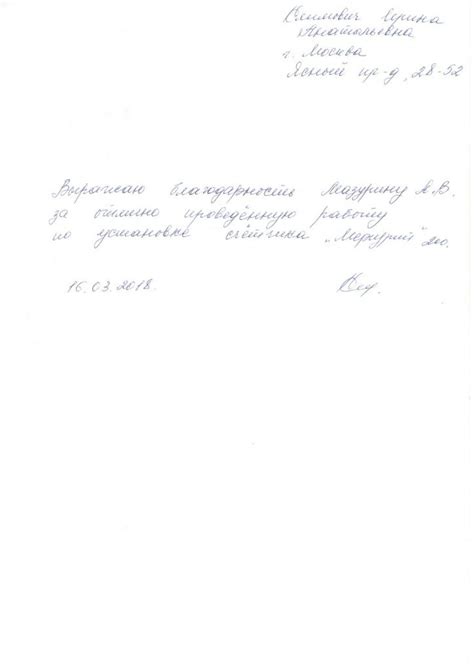 Климович Ирина
Анатольевна
г. Москва
Ясный пр-д, 28-52
Выражаю благодарность Мазурину А.В.
за отлично проведённую работу
по установке счётчика „Меркурий" 200.
16.03.2018.